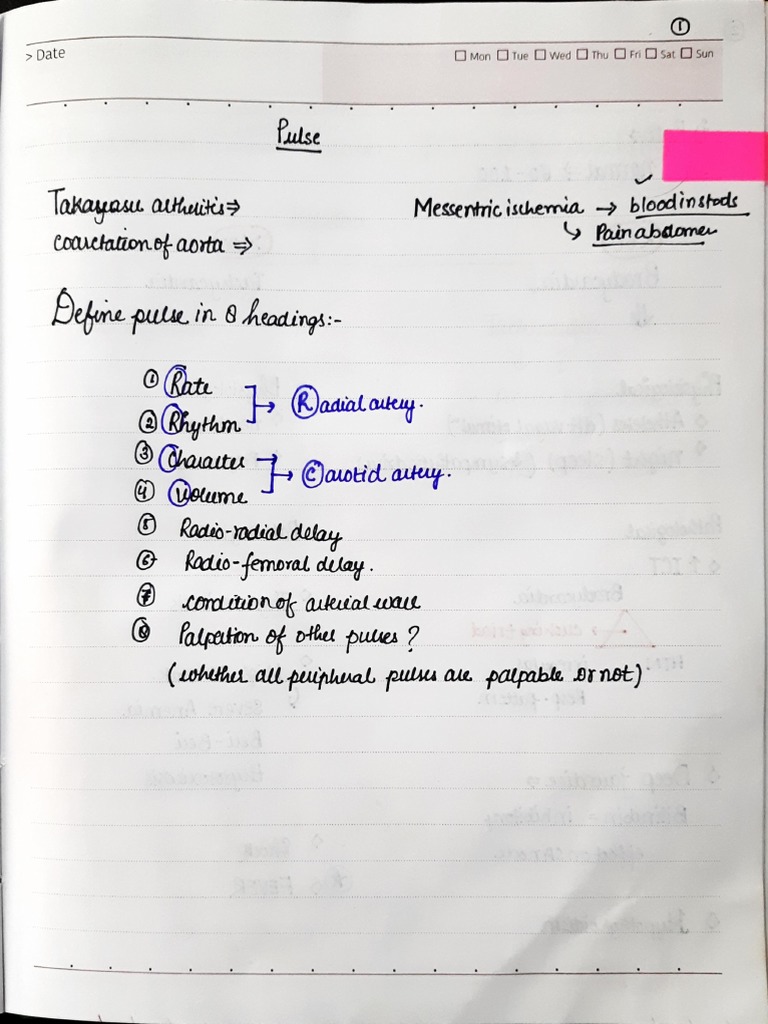 ①
> Date
☐ Mon ☐ Tue ☐ Wed ☐ Thu ☐ Fri ☐ Sat ☐ Sun
Pulse
Takayasu atheritis ⇒
coarctation of aorta ⇒
Messentric ischemia → blood in stods
↳ Pain abdomen
Define pulse in 8 headings:-
① Rate
② Rhythm
→ Radial artery.
③ Character
④ Volume
→ Carotid artery.
⑤ Radio-radial delay
⑥ Radio-femoral delay.
⑦ condition of arterial wall
⑧ Palpation of other pulses ?
(whether all peripheral pulses are palpable or not)